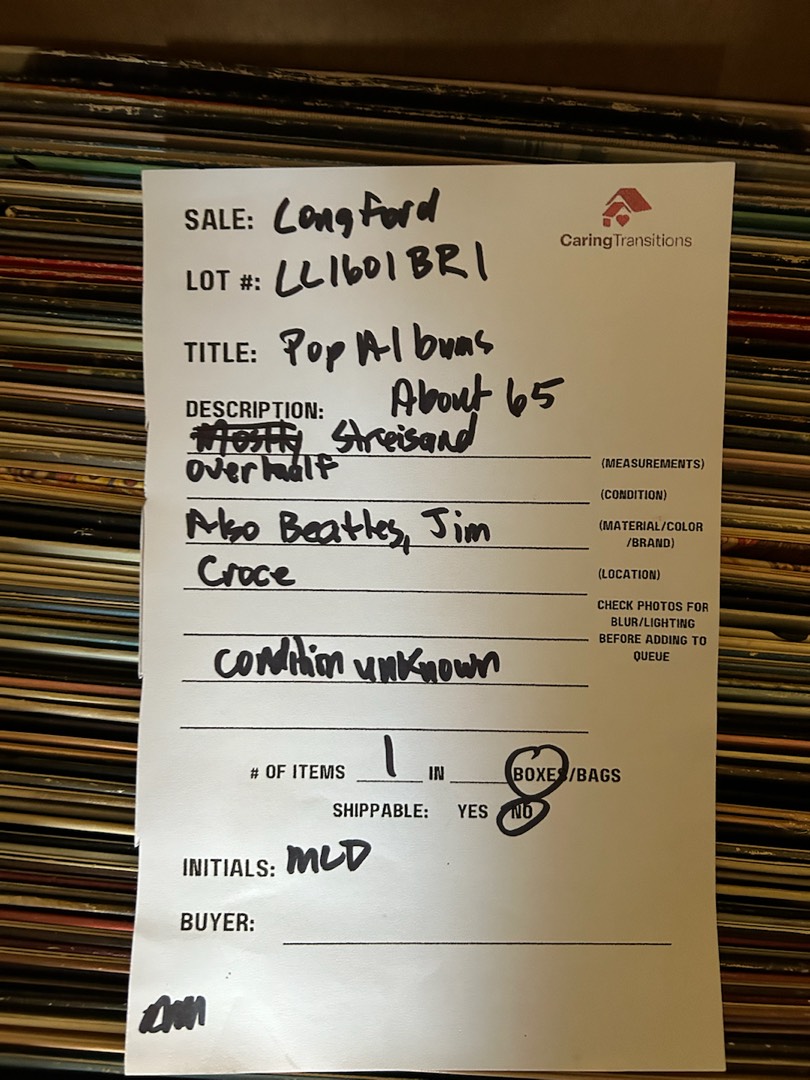 SALE: Longford
CaringTransitions
LOT #: LL1601BR1
TITLE: Pop Albums
DESCRIPTION: About 65
Mostly Streisand
over half
(MEASUREMENTS)
(CONDITION)
Also Beatles, Jim
(MATERIAL/COLOR
/BRAND)
Croce
(LOCATION)
CHECK PHOTOS FOR
BLUR/LIGHTING
BEFORE ADDING TO
QUEUE
condition unknown
# OF ITEMS 1 IN BOXES/BAGS
SHIPPABLE: YES NO
INITIALS: MLD
BUYER: